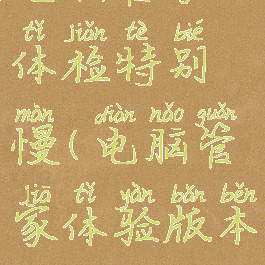 tǐ jiǎn tè bié
体检特别
màn diàn nǎo guǎn
慢(电脑管
jiā tǐ yàn bǎn běn
家体验版本